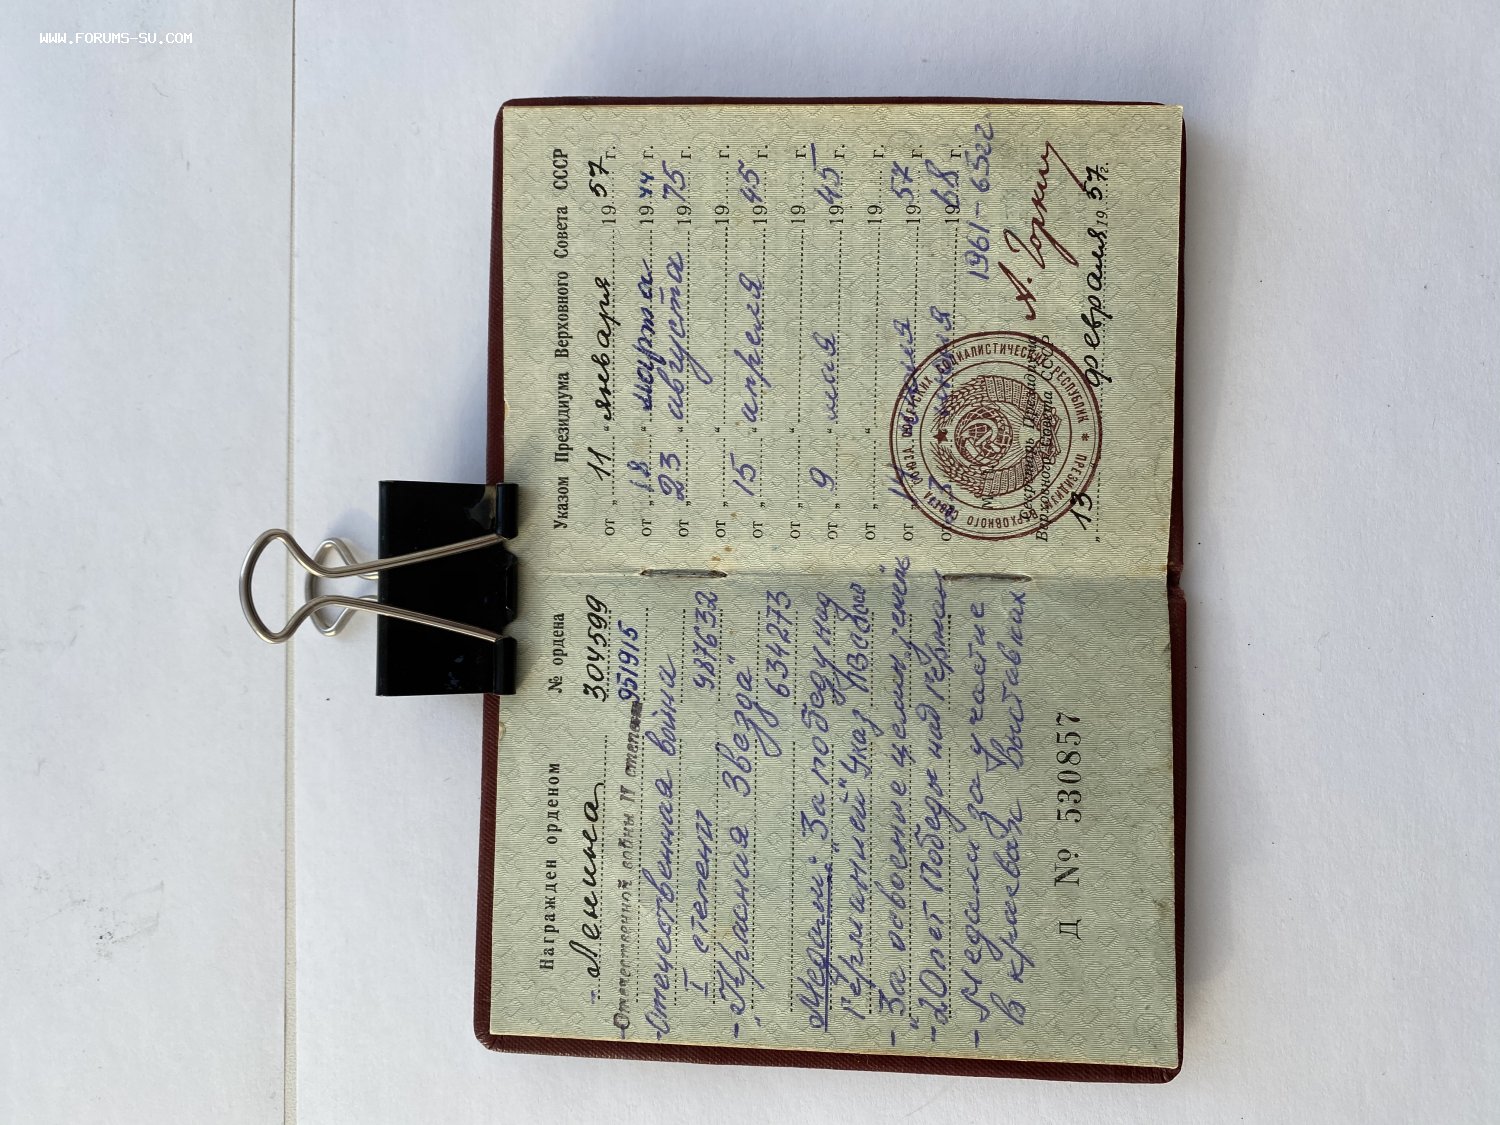 WWW.FORUMS-SU.COM
Награжден орденом № ордена
- Ленина 304599
- Отечественной войны II степени 951915
- Отечественная война
I степени 987632
- "Красная Звезда"
634273
Медали: „За победу над
Германией" Указ
- За освоение целин. земель"
- "20 лет Победы над Герман
- Медали за участие
в краевых выставках
Д № 530857
Указом Президиума Верховного Совета СССР
от „ 11 “ января 19 57 г.
от „ 18 “ марта 19 44 г.
от „ 23 “ августа 19 75 г.
от „ “ 19 г.
от „ 15 “ апреля 19 45 г.
от „ “ 19 г.
от „ 9 “ мая 19 45 г.
от „ “ 19 г.
от 19 57 г.
от 19 68 г.
1961-65гг
Секретарь Президиума
Верховного Совета СССР
А. Горкин
„ 13 “ февраля 19 57 г.
ПРЕЗИДИУМ ВЕРХОВНОГО СОВЕТА СОЮЗА СОВЕТСКИХ СОЦИАЛИСТИЧЕСКИХ РЕСПУБЛИК